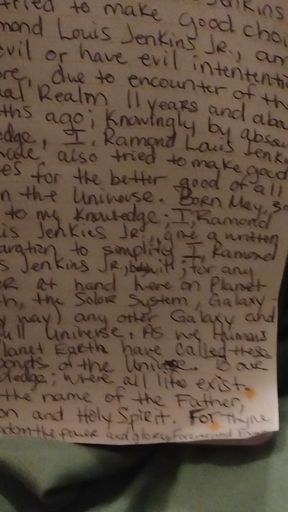 tried to make good cho
mond Louis Jenkins Jr., am
evil or have evil intententi
ore, due to encounter of th
al Realm 11 years and aba
ths ago; Knowingly by absou
edge, I, Ramond Louis Jenk
also tried to make good
es for the better good of all
n the Universe. Born May, 30
to my Knowledge; I, Ramond
is Jenkies Jr., give a written
aration to simplify I, Ramond
s Jenkins Jr, for any
ER at hand here on Planet
h, the Solar System, Galaxy
y way) any other Galaxy and
ull Universe. As we Humans
lanet Earth have called these
of the Univ to our
ledge; where all life exist.
the name of the Father,
on and Holy Spirit. For thyne
and glory forever and